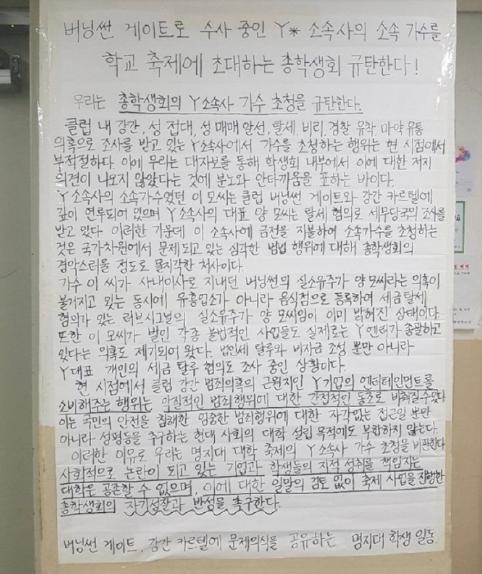 버닝썬 게이트로 수사 중인 Y* 소속사의 소속 가수를
학교 축제에 초대하는 총학생회 규탄한다!
우리는 총학생회의 Y소속사 가수 초청을 규탄한다.
클럽 내 강간, 성 접대, 성매매 알선, 탈세, 비리, 경찰 유착 마약 유통
의혹으로 조사를 받고 있는 Y소속사에서 가수를 초청하는 행위는 현 시점에서
부적절하다. 이에 우리는 대자보를 통해 학생회 내부에서 이에 대한 저지
의견이 나오지 않았다는 것에 분노와 안타까움을 표하는 바이다.
Y소속사의 소속가수였던 이 모씨는 클럽 버닝썬 게이트와 강간 카르텔에
깊이 연루되어 있으며 Y소속사의 대표 양 모씨는 탈세 혐의로 세무당국의 조사를
받고 있다. 이러한 가운데 이 소속사에 금전을 지불하여 소속가수를 초청하는
것은 국가차원에서 문제되고 있는 심각한 범법 행위에 대해 총학생회의
경악스러울 정도로 몰지각한 처사이다.
가수 이 씨가 사내이사로 지내던 버닝썬의 실소유주가 양 모씨라는 의혹이
불거지고 있는 동시에 유흥업소가 아니라 음식점으로 등록하여 세금 탈세
혐의가 있는 러브시그널의 실소유주가 양 모씨임이 이미 밝혀진 상태이다.
또한 이 모씨가 벌인 각종 불법적인 사업들도 실제로는 Y엔터가 총괄하고
있다는 의혹도 제기되어 왔다. 법인세 탈루와 비자금 조성 뿐만 아니라
Y대표 개인의 세금 탈루 혐의도 조사 중인 상황이다.
현 시점에서 클럽 강간 범죄의혹의 근원지인 Y기업의 엔터테인먼트를
소비해주는 행위는 악질적인 범죄행위에 대한 간접적인 동조로 비춰질 수 있다.
이는 국민의 안전을 침해한 엄중한 범죄행위에 대한 자각없는 접근일 뿐만
아니라 성평등을 추구하는 현대 사회의 대학 설립 목적에도 부합하지 않는다.
이러한 이유로 우리는 명지대 대학 축제의 Y소속사 가수 초청을 비판한다.
사회적으로 논란이 되고 있는 기업과 학생들의 지적 성취를 책임지는
대학은 공존할 수 없으며, 이에 대한 일말의 검토 없이 축제 사업을 진행한
총학생회의 자기성찰과 반성을 촉구한다.
버닝썬 게이트, 강간 카르텔에 문제의식을 공유하는 명지대 학생 일동